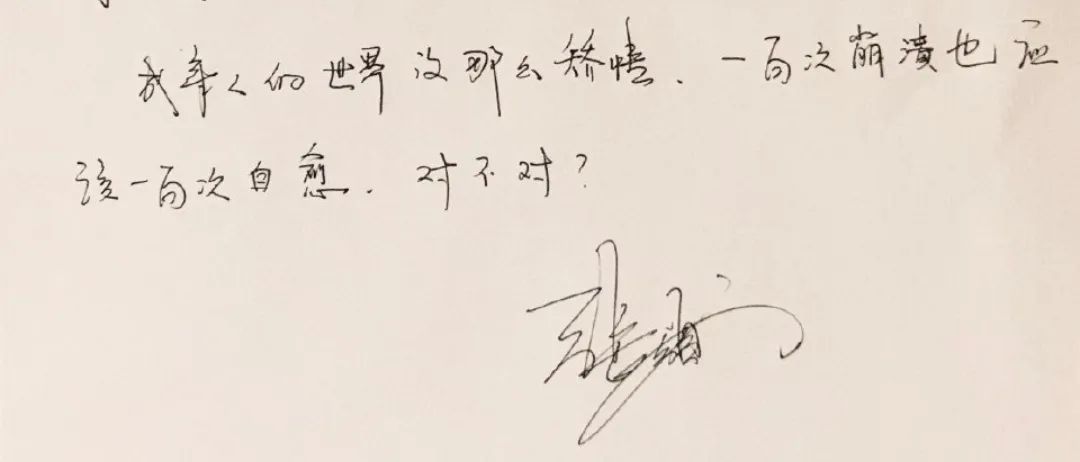 成年人的世界没那么矫情，一百次崩溃也应
该一百次自愈，对不对？